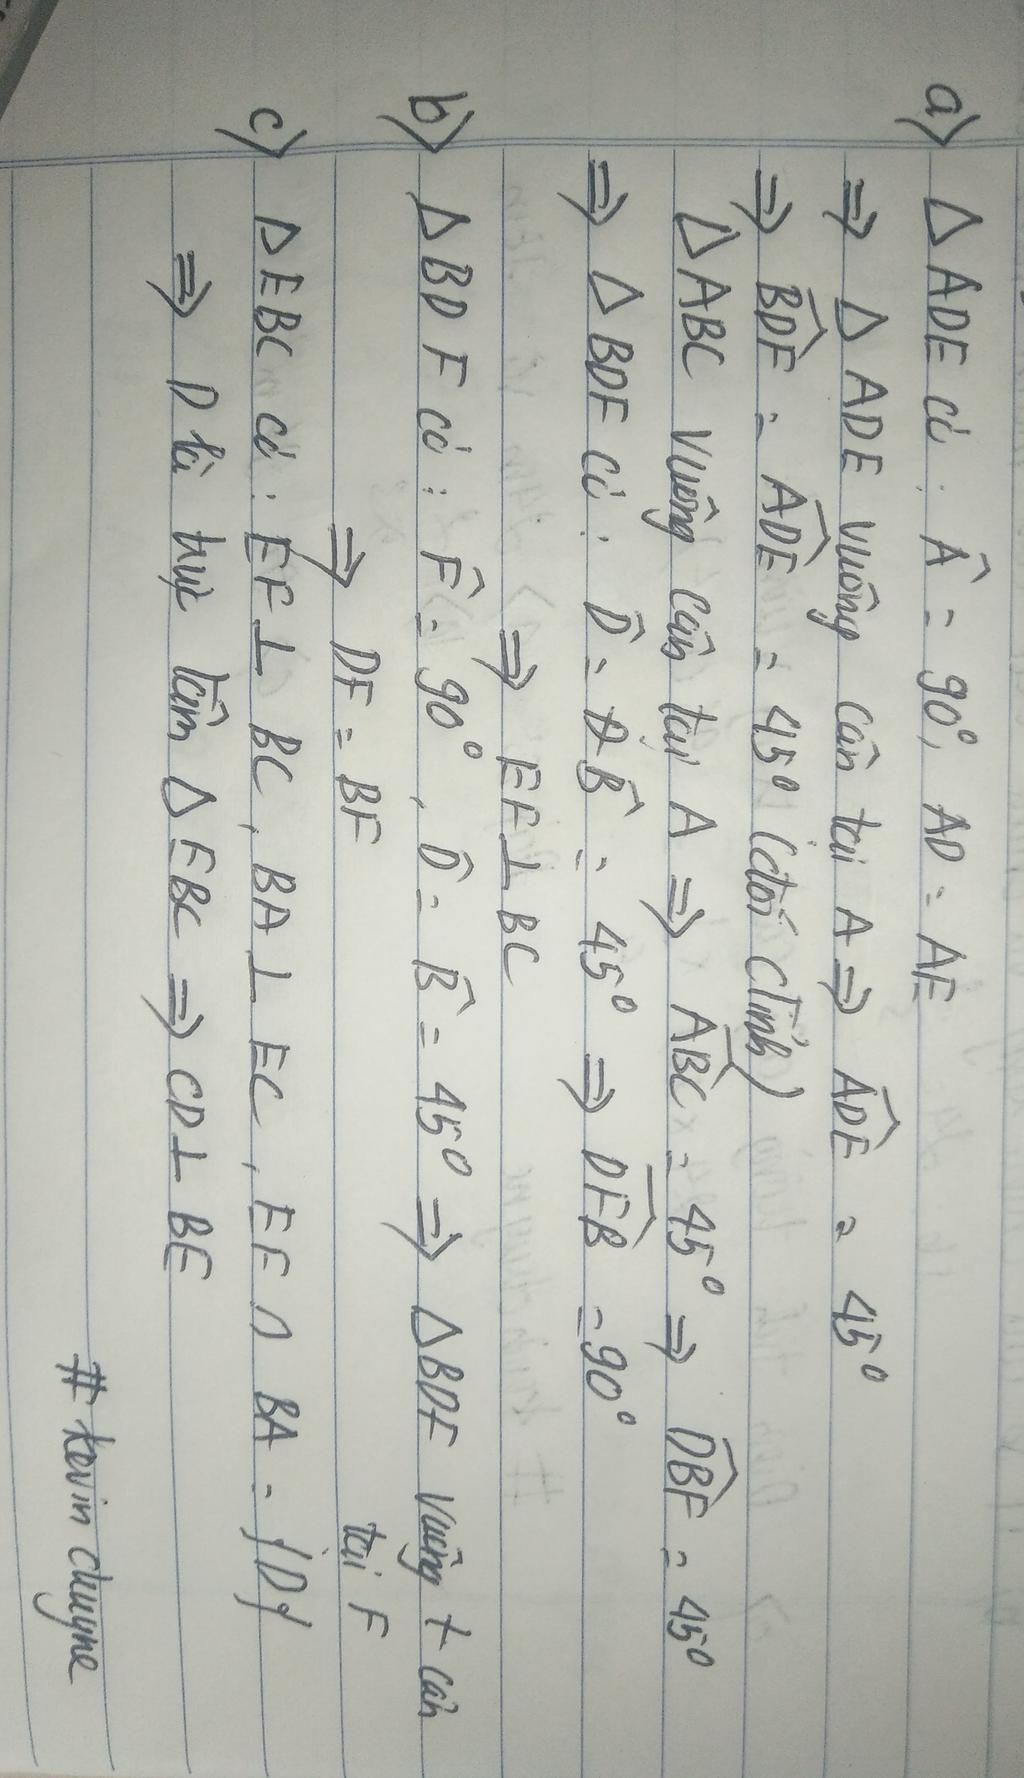 a) Δ ADE có: Â = 90°, AD = AE
⇒ Δ ADE vuông cân tại A ⇒ ADE^ = 45°
⇒ BDF^ = ADE^ = 45° (đối đỉnh)
Δ ABC vuông cân tại A ⇒ ABC^ = 45° ⇒ DBF^ = 45°
⇒ Δ BDF có: D^ = B^ = 45° ⇒ DFB^ = 90°
⇒ EF ⊥ BC
b) Δ BDF có: F^ = 90°, D^ = B^ = 45° ⇒ Δ BDF vuông + cân
tại F
⇒ DF = BF
c) Δ EBC có: EF ⊥ BC, BA ⊥ EC, EF ∩ BA = {D}
⇒ D là trực tâm Δ EBC ⇒ CD ⊥ BE
# kevin chuyne